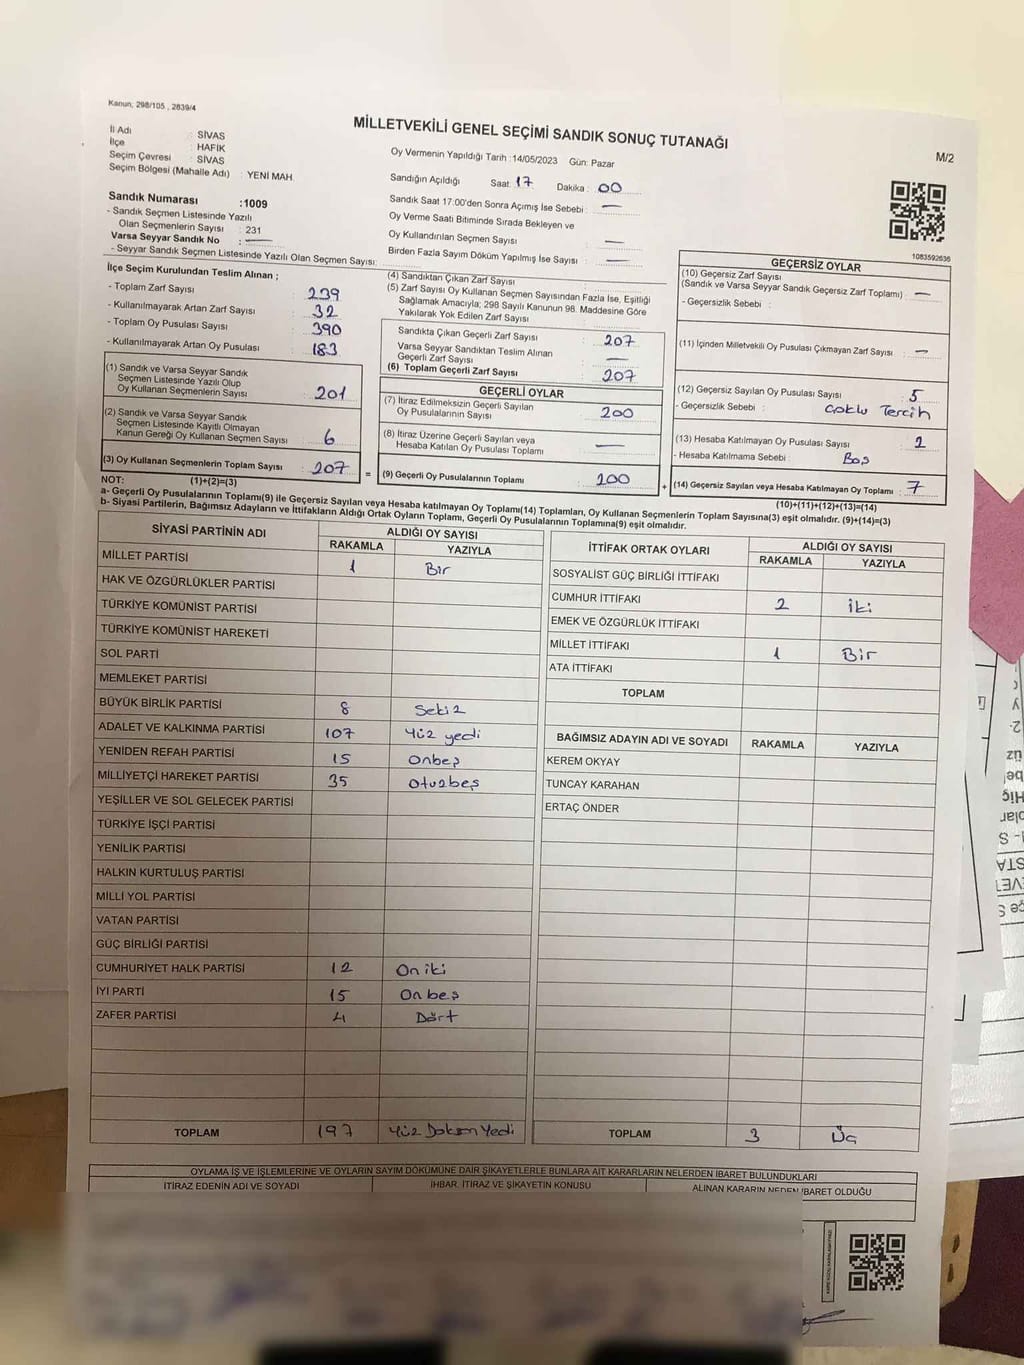 Kanun, 298/105 , 2839/4
MİLLETVEKİLİ GENEL SEÇİMİ SANDIK SONUÇ TUTANAĞI
M/2
İl Adı : SİVAS
İlçe : HAFİK
Seçim Çevresi : SİVAS
Seçim Bölgesi (Mahalle Adı) : YENİ MAH.
Sandık Numarası :1009
- Sandık Seçmen Listesinde Yazılı
Olan Seçmenlerin Sayısı : 231
Varsa Seyyar Sandık No : —
- Seyyar Sandık Seçmen Listesinde Yazılı Olan Seçmen Sayısı:
Oy Vermenin Yapıldığı Tarih :14/05/2023 Gün: Pazar
Sandığın Açıldığı Saat: 17 Dakika : 00
Sandık Saat 17:00'den Sonra Açımış İse Sebebi : —
Oy Verme Saati Bitiminde Sırada Bekleyen ve
Oy Kullandırılan Seçmen Sayısı : —
Birden Fazla Sayım Döküm Yapılmış İse Sayısı : —
1083592636
İlçe Seçim Kurulundan Teslim Alınan ;
- Toplam Zarf Sayısı : 239
- Kullanılmayarak Artan Zarf Sayısı : 32
- Toplam Oy Pusulası Sayısı : 390
- Kullanılmayarak Artan Oy Pusulası : 183
(1) Sandık ve Varsa Seyyar Sandık
Seçmen Listesinde Yazılı Olup
Oy Kullanan Seçmenlerin Sayısı : 201
(2) Sandık ve Varsa Seyyar Sandık
Seçmen Listesinde Kayıtlı Olmayan
Kanun Gereği Oy Kullanan Seçmen Sayısı : 6
(3) Oy Kullanan Seçmenlerin Toplam Sayısı : 207
(1)+(2)=(3)
(4) Sandıktan Çıkan Zarf Sayısı :
(5) Zarf Sayısı Oy Kullanan Seçmen Sayısından Fazla İse, Eşitliği
Sağlamak Amacıyla; 298 Sayılı Kanunun 98. Maddesine Göre
Yakılarak Yok Edilen Zarf Sayısı :
Sandıkta Çıkan Geçerli Zarf Sayısı : 207
Varsa Seyyar Sandıktan Teslim Alınan
Geçerli Zarf Sayısı : —
(6) Toplam Geçerli Zarf Sayısı : 207
GEÇERLİ OYLAR
(7) İtiraz Edilmeksizin Geçerli Sayılan
Oy Pusulalarının Sayısı : 200
(8) İtiraz Üzerine Geçerli Sayılan veya
Hesaba Katılan Oy Pusulası Toplamı : —
= (9) Geçerli Oy Pusulalarının Toplamı : 200 +
GEÇERSİZ OYLAR
(10) Geçersiz Zarf Sayısı
(Sandık ve Varsa Seyyar Sandık Geçersiz Zarf Toplamı) : —
- Geçersizlik Sebebi :
(11) İçinden Milletvekili Oy Pusulası Çıkmayan Zarf Sayısı : —
(12) Geçersiz Sayılan Oy Pusulası Sayısı : 5
- Geçersizlik Sebebi : Çoklu Tercih
(13) Hesaba Katılmayan Oy Pusulası Sayısı : 2
- Hesaba Katılmama Sebebi : Boş
(14) Geçersiz Sayılan veya Hesaba Katılmayan Oy Toplamı : 7
(10)+(11)+(12)+(13)=(14)
NOT:
a- Geçerli Oy Pusulalarının Toplamı(9) ile Geçersiz Sayılan veya Hesaba katılmayan Oy Toplamı(14) Toplamları, Oy Kullanan Seçmenlerin Toplam Sayısına(3) eşit olmalıdır. (9)+(14)=(3)
b- Siyasi Partilerin, Bağımsız Adayların ve İttifakların Aldığı Ortak Oyların Toplamı, Geçerli Oy Pusulalarının Toplamına(9) eşit olmalıdır.
SİYASİ PARTİNİN ADI ALDIĞI OY SAYISI
RAKAMLA YAZIYLA
MİLLET PARTİSİ 1 Bir
HAK VE ÖZGÜRLÜKLER PARTİSİ
TÜRKİYE KOMÜNİST PARTİSİ
TÜRKİYE KOMÜNİST HAREKETİ
SOL PARTİ
MEMLEKET PARTİSİ
BÜYÜK BİRLİK PARTİSİ 8 Sekiz
ADALET VE KALKINMA PARTİSİ 107 Yüz yedi
YENİDEN REFAH PARTİSİ 15 Onbeş
MİLLİYETÇİ HAREKET PARTİSİ 35 Otuzbeş
YEŞİLLER VE SOL GELECEK PARTİSİ
TÜRKİYE İŞÇİ PARTİSİ
YENİLİK PARTİSİ
HALKIN KURTULUŞ PARTİSİ
MİLLİ YOL PARTİSİ
VATAN PARTİSİ
GÜÇ BİRLİĞİ PARTİSİ
CUMHURİYET HALK PARTİSİ 12 On iki
İYİ PARTİ 15 On beş
ZAFER PARTİSİ 4 Dört
TOPLAM 197 Yüz Doksan Yedi
İTTİFAK ORTAK OYLARI ALDIĞI OY SAYISI
RAKAMLA YAZIYLA
SOSYALİST GÜÇ BİRLİĞİ İTTİFAKI
CUMHUR İTTİFAKI 2 İki
EMEK VE ÖZGÜRLÜK İTTİFAKI
MİLLET İTTİFAKI 1 Bir
ATA İTTİFAKI
TOPLAM
BAĞIMSIZ ADAYIN ADI VE SOYADI RAKAMLA YAZIYLA
KEREM OKYAY
TUNCAY KARAHAN
ERTAÇ ÖNDER
TOPLAM 3 Üç
OYLAMA İŞ VE İŞLEMLERİNE VE OYLARIN SAYIM DÖKÜMÜNE DAİR ŞİKAYETLERLE BUNLARA AİT KARARLARIN NELERDEN İBARET BULUNDUKLARI
İTİRAZ EDENİN ADI VE SOYADI İHBAR, İTİRAZ VE ŞİKAYETİN KONUSU ALINAN KARARIN NEDEN İBARET OLDUĞU